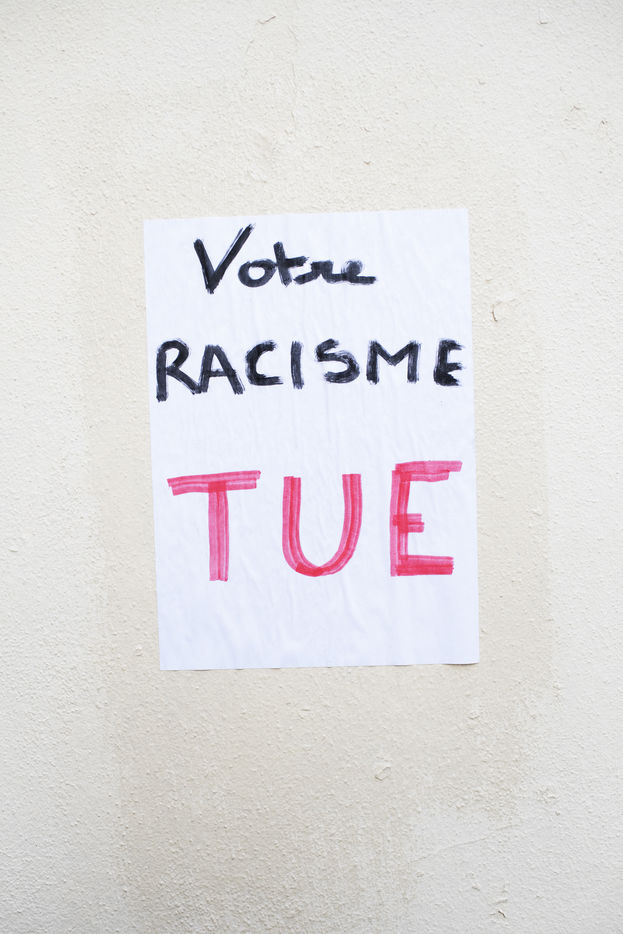 Votre
RACISME
TUE